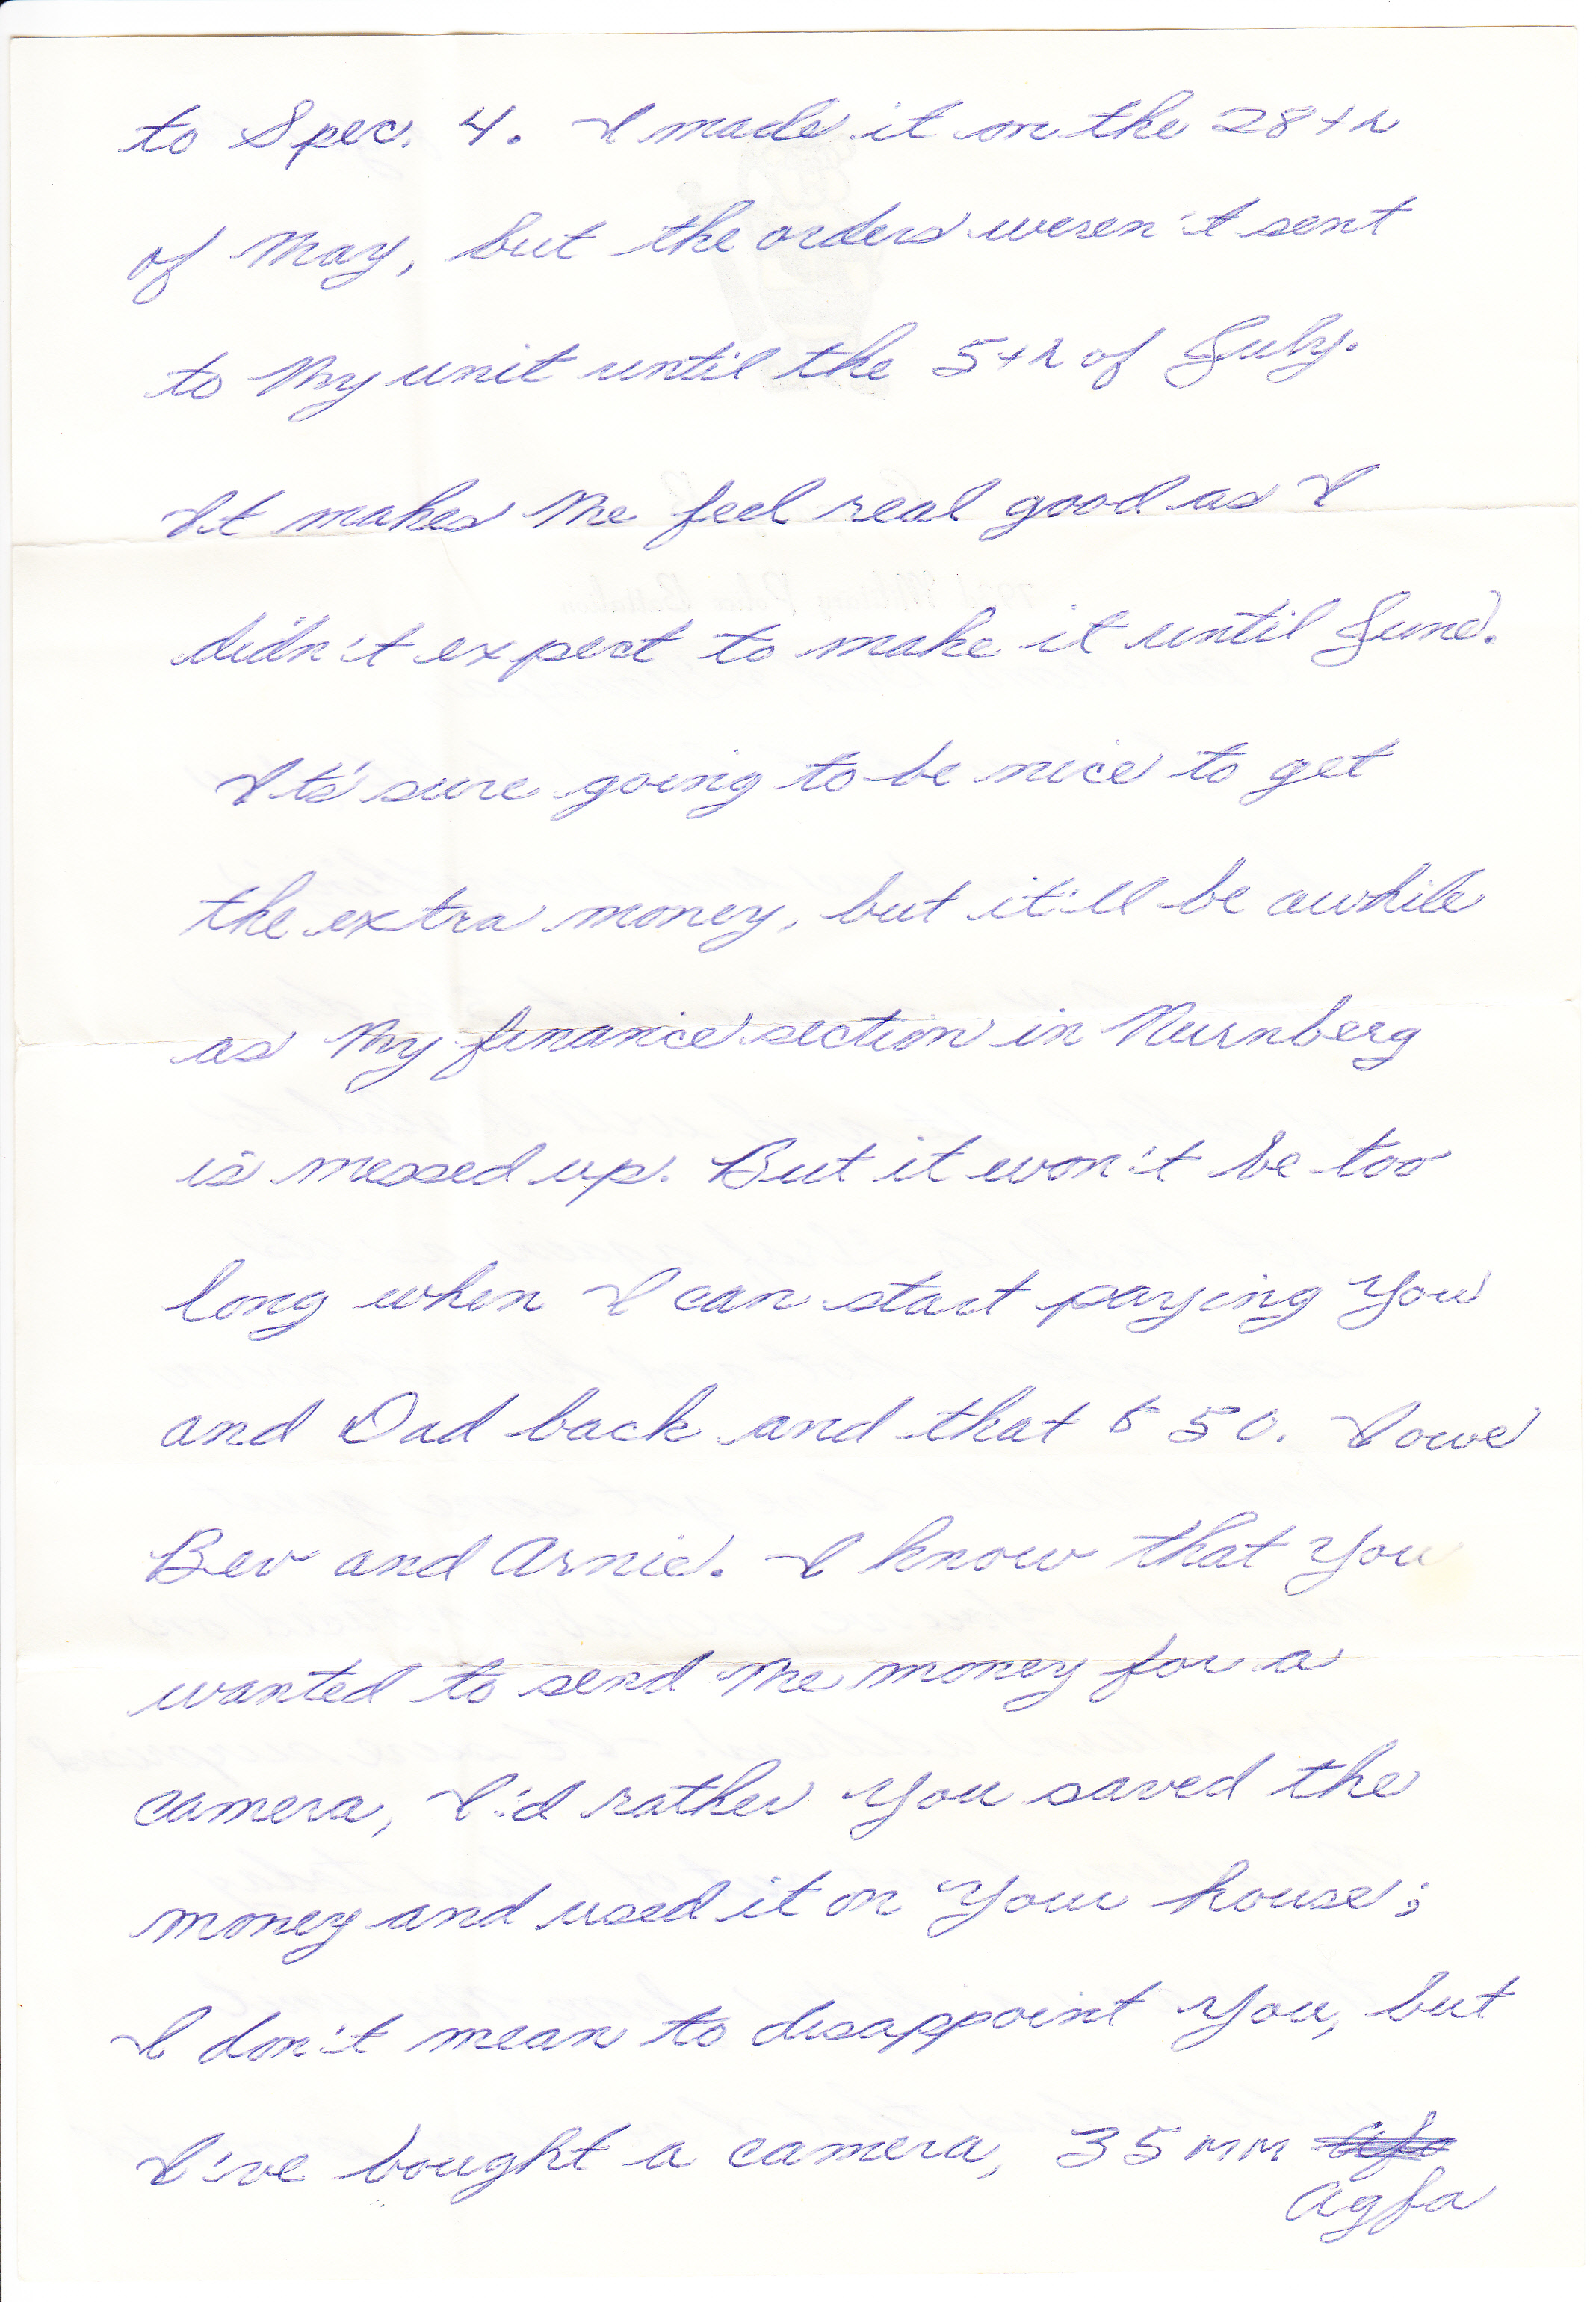 to Spec. 4. I made it on the 28th
of May, but the orders weren't sent
to My unit until the 5th of July.
It makes Me feel real good as I
didn't expect to make it until June.
It's sure going to be nice to get
the extra money, but it'll be awhile
as My finance section in Nurnberg
is messed up. But it won't be too
long when I can start paying You
and Dad back and that $50. I owe
Bev and Arnie. I know that You
wanted to send Me money for a
camera, I'd rather You saved the
money and used it on Your house;
I don't mean to disappoint You, but
I've bought a camera, 35MM
Agfa